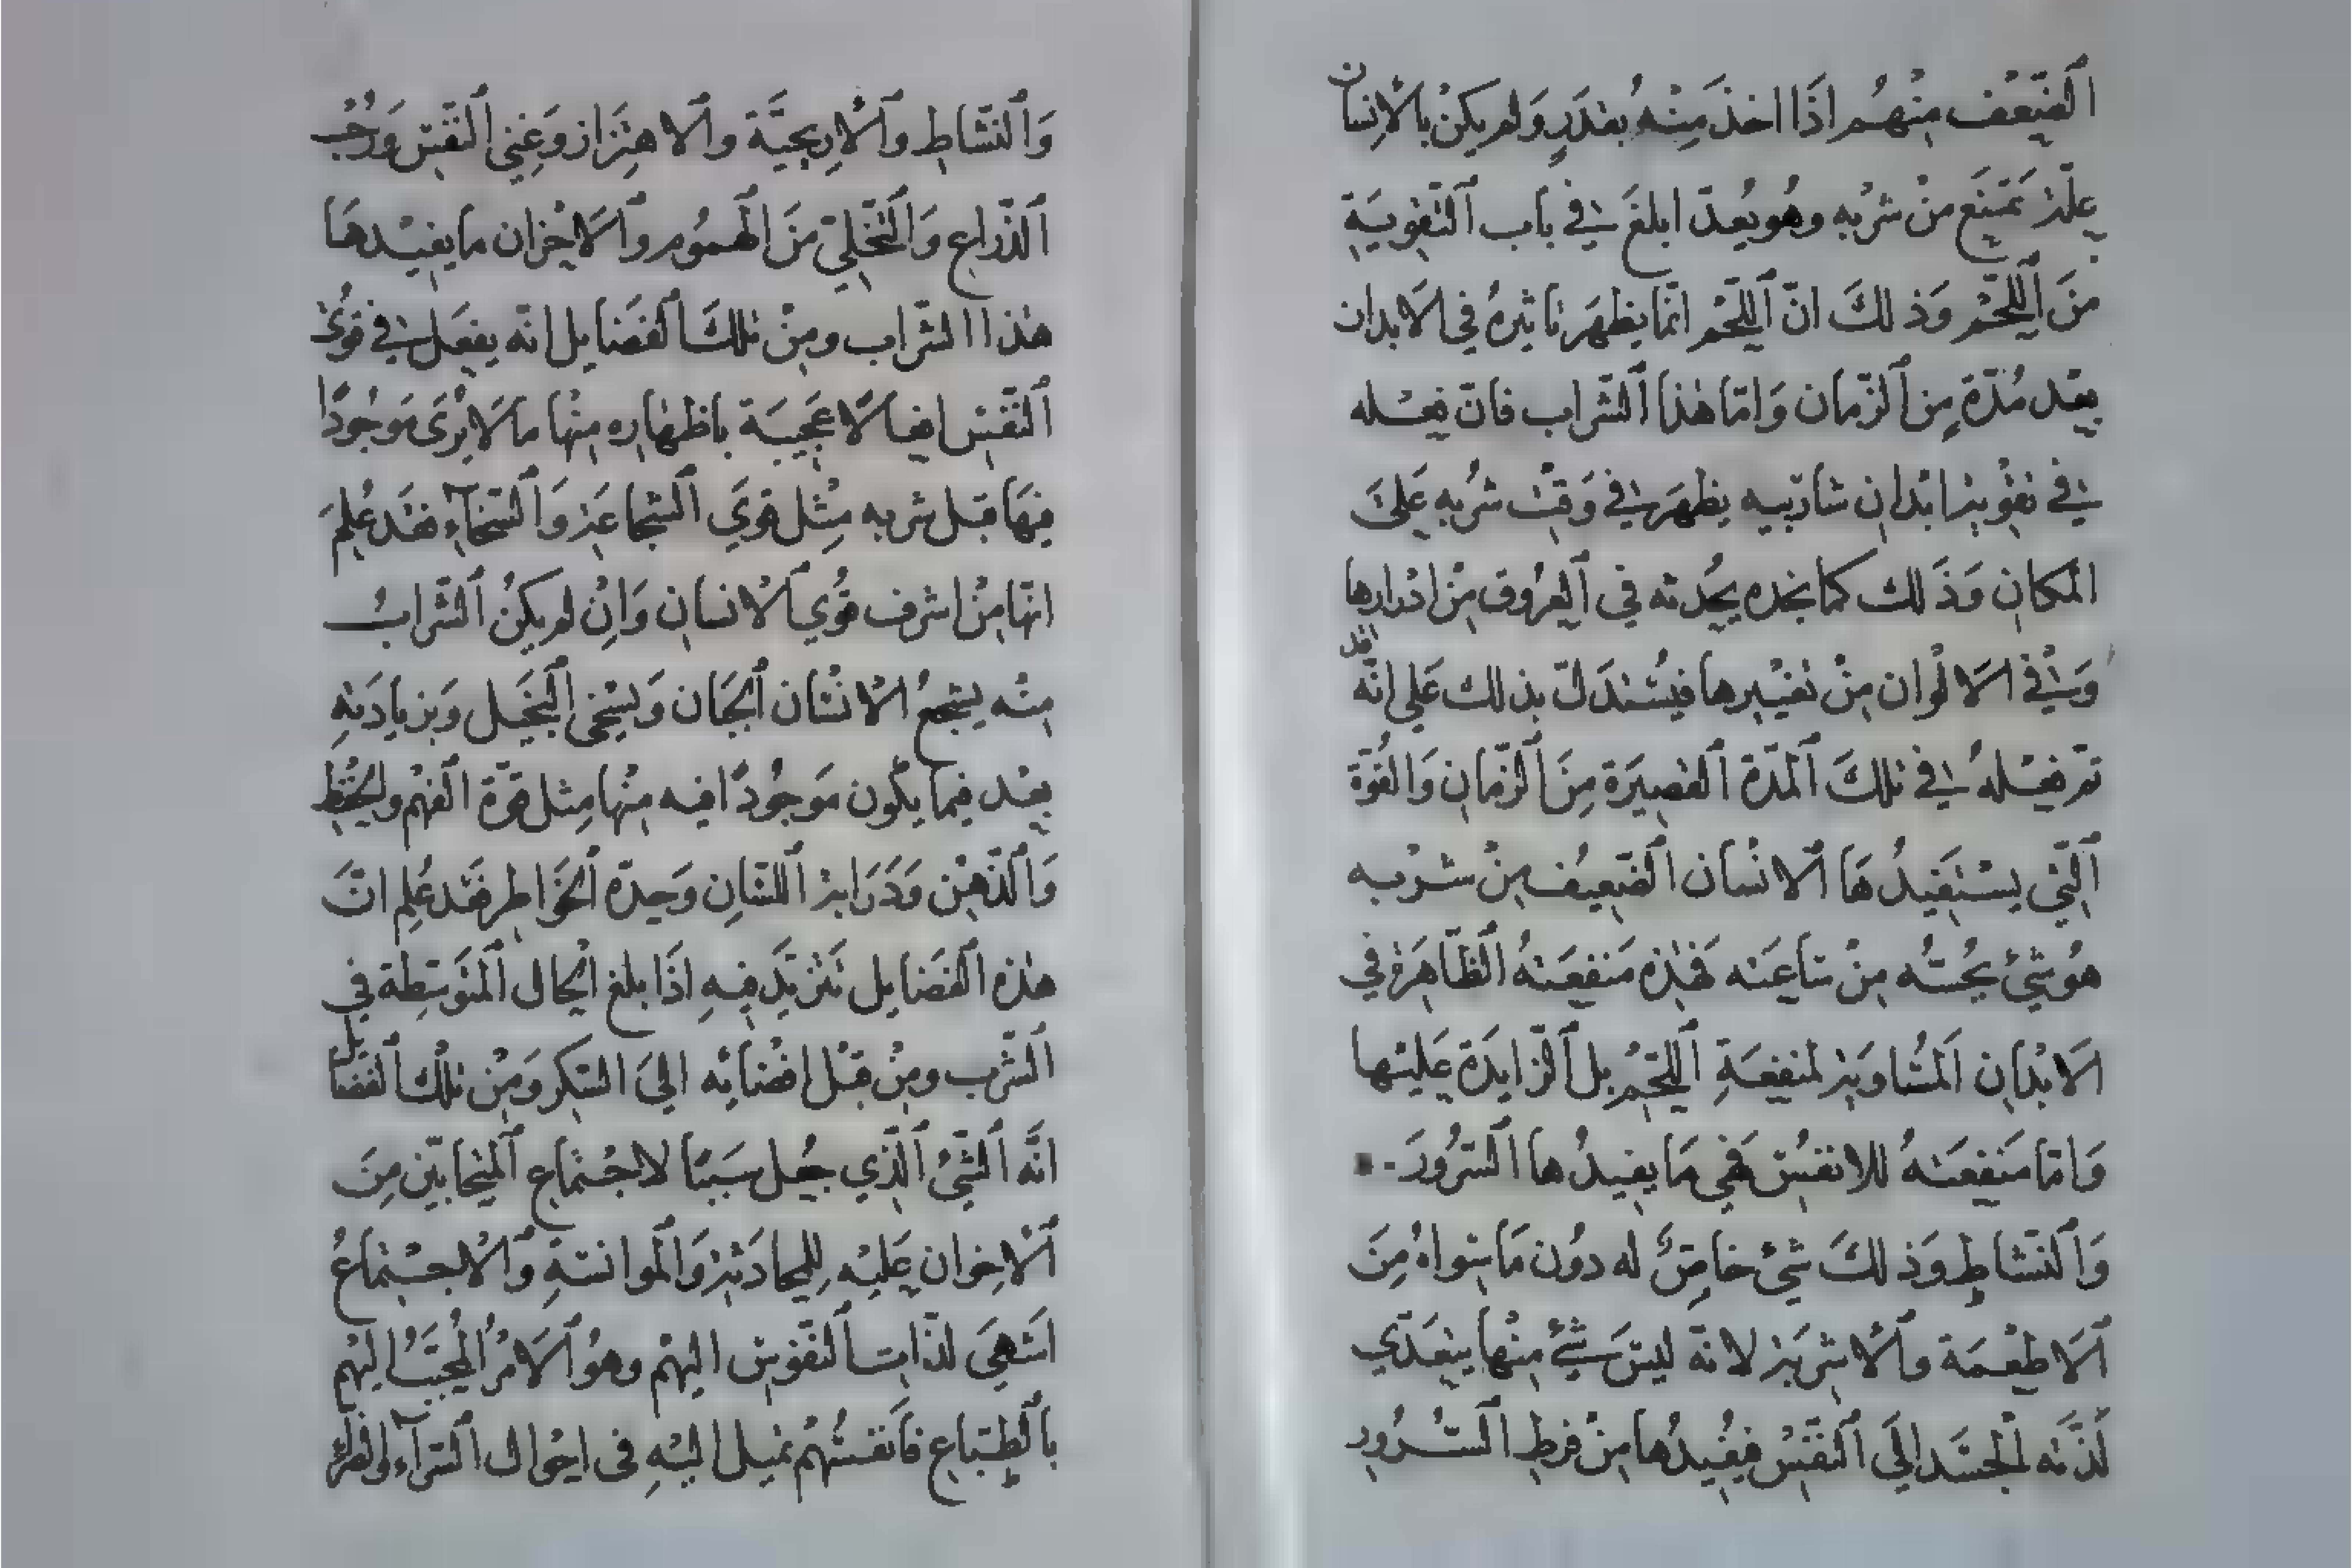 الضّعف منهم اذا اخذ منه بقدر ولم يكن بالانسان
علة تمنع من شربه وهو يعدّ ابلغ في باب التقوية
من اللحم وذلك انّ اللحم انما يظهر تاثيره في الابدان
بعد مدّة من الزمان وامّا هذا الشراب فانّ فعله
في تقوية ابدان شاربيه يظهر في وقت شربه على
المكان وذلك كما نجده يحدثه في العروق من ادرارها
وفي الالوان من تغييرها فيستدلّ بذلك على انّه قد
تم فعله في تلك المدّة القصيرة من الزمان والقوّة
التي يستفيدها الانسان الضعيف من شربه
هو شيء يحسّه من ساعته فهذه منفعته الظاهرة في
الابدان المساوية لمنفعة اللحم بل الزايدة عليها
وامّا منفعته للانفس فهي ما يفيدها السرور
والنشاط وذلك شيء خاصّ له دون ما سواه من
الاطعمة والاشربة لانه ليس شيء منها يتعدّي
لذّته الجسد الى النفس فيفيدها من فرط السرور
والنشاط والاريحيّة والاهتزاز وغنى النفس ورحب
الذراع والتخلّي من الهموم والاحزان ما يفيدها
هذا الشراب ومن تلك الفضايل انه يفعل في قوى
النفس افعالا عجيبة باظهاره منها ما لا يرى موجودًا
فيها قبل شربه مثل قوي الشجاعة والسخآء فقد علم
انّها من اشرف قوي الانسان وان لم يكن الشراب
منه يشجع الانسان الجبان ويسخى البخيل وبزيادته
بعد فيما يكون موجودًا فيه منها مثل قوّة الفهم والحفظ
والذهن وذرابة اللسان وحدّة الخواطر فقد علم انّ
هذه الفضايل تتزيّد فيه اذا بلغ الحال المتوسطة في
الشرب ومن قبل افضائه الى السكر ومن تلك الفضايل
انّه الشيء الذي جعل سببًا لاجتماع المتحابّين من
الاخوان عليه للمحادثة والموانسة والاجتماع
اشهى لذّات النفوس اليهم وهو الامر المحبّب اليهم
بالطباع فانفسهم تميل اليه في احوال السرآء